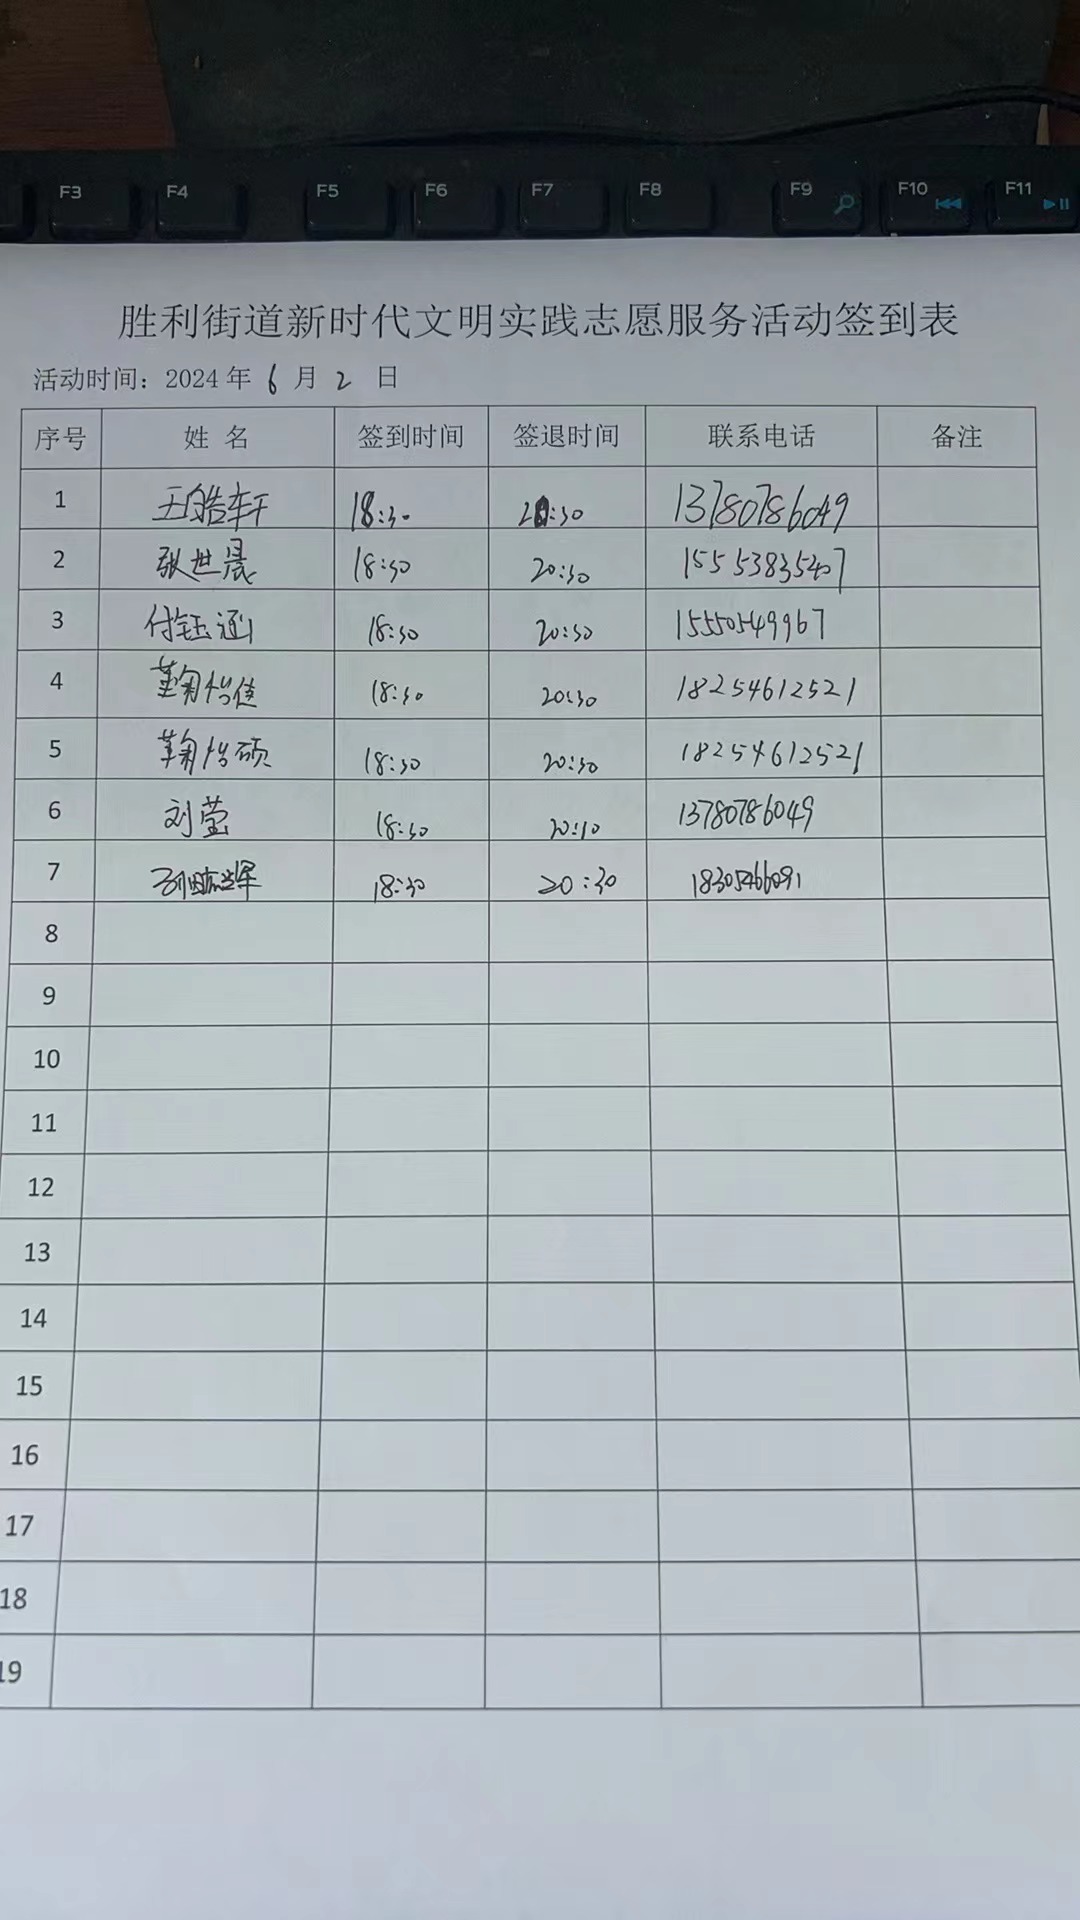 F3 F4 F5 F6 F7 F8 F9 F10 F11
胜利街道新时代文明实践志愿服务活动签到表
活动时间：2024年 6 月 2 日
序号 姓 名 签到时间 签退时间 联系电话 备注
1 王皓轩 18:30 20:30 13780786049
2 张世晨 18:30 20:30 15553835407
3 付钰涵 18:30 20:30 15550549967
4 鞠怡佳 18:30 20:30 18254612521
5 鞠怡硕 18:30 20:30 18254612521
6 刘莹 18:30 20:10 13780786049
7 18:30 20:30 18305466091
8
9
10
11
12
13
14
15
16
17
18
19